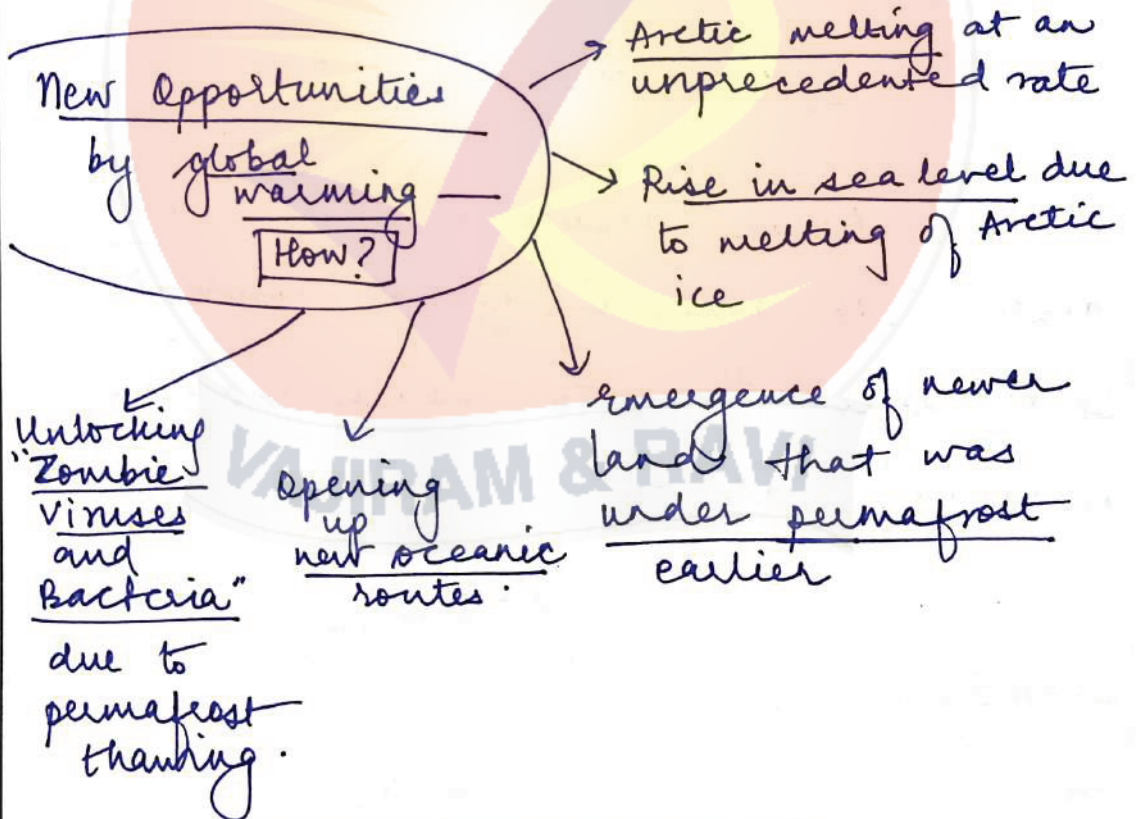 New Opportunities
by global
warming —
How?
Arctic melting at an
unprecedented rate
Rise in sea level due
to melting of Arctic
ice
emergence of newer
land that was
under permafrost
earlier
Opening
up
new oceanic
routes.
Unlocking
"Zombie
Viruses
and
Bacteria"
due to
permafrost
thawing.
VAJIRAM & RAVI